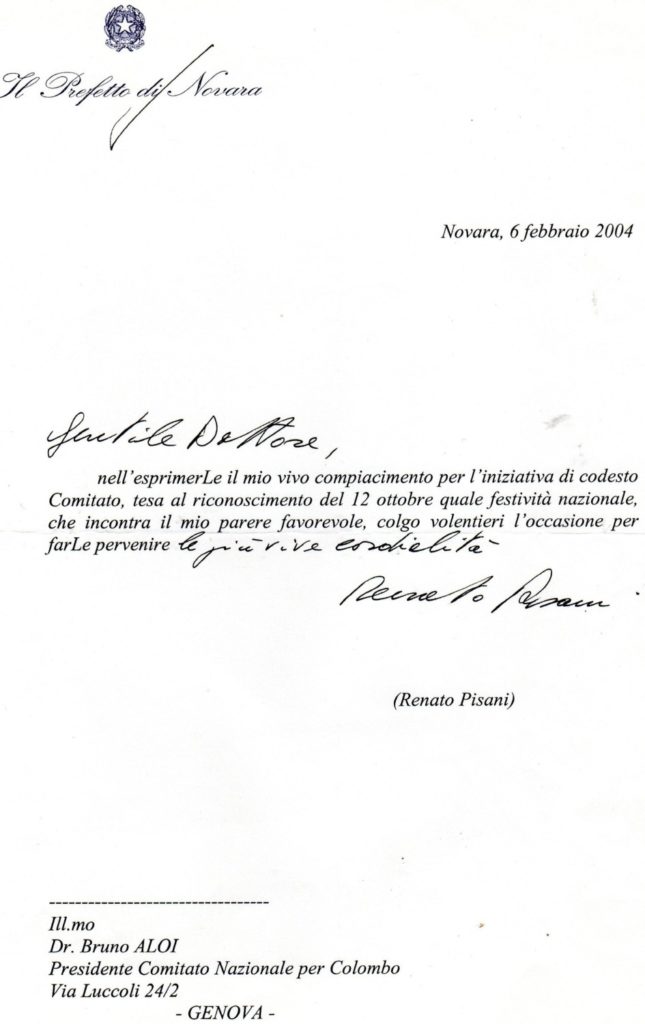 Il Prefetto di Novara
Novara, 6 febbraio 2004
Gentile Dottore,
nell'esprimerLe il mio vivo compiacimento per l'iniziativa di codesto
Comitato, tesa al riconoscimento del 12 ottobre quale festività nazionale,
che incontra il mio parere favorevole, colgo volentieri l'occasione per
farLe pervenire le più vive cordialità
Renato Pisani
(Renato Pisani)
----------------------------------
Ill.mo
Dr. Bruno ALOI
Presidente Comitato Nazionale per Colombo
Via Luccoli 24/2
- GENOVA -